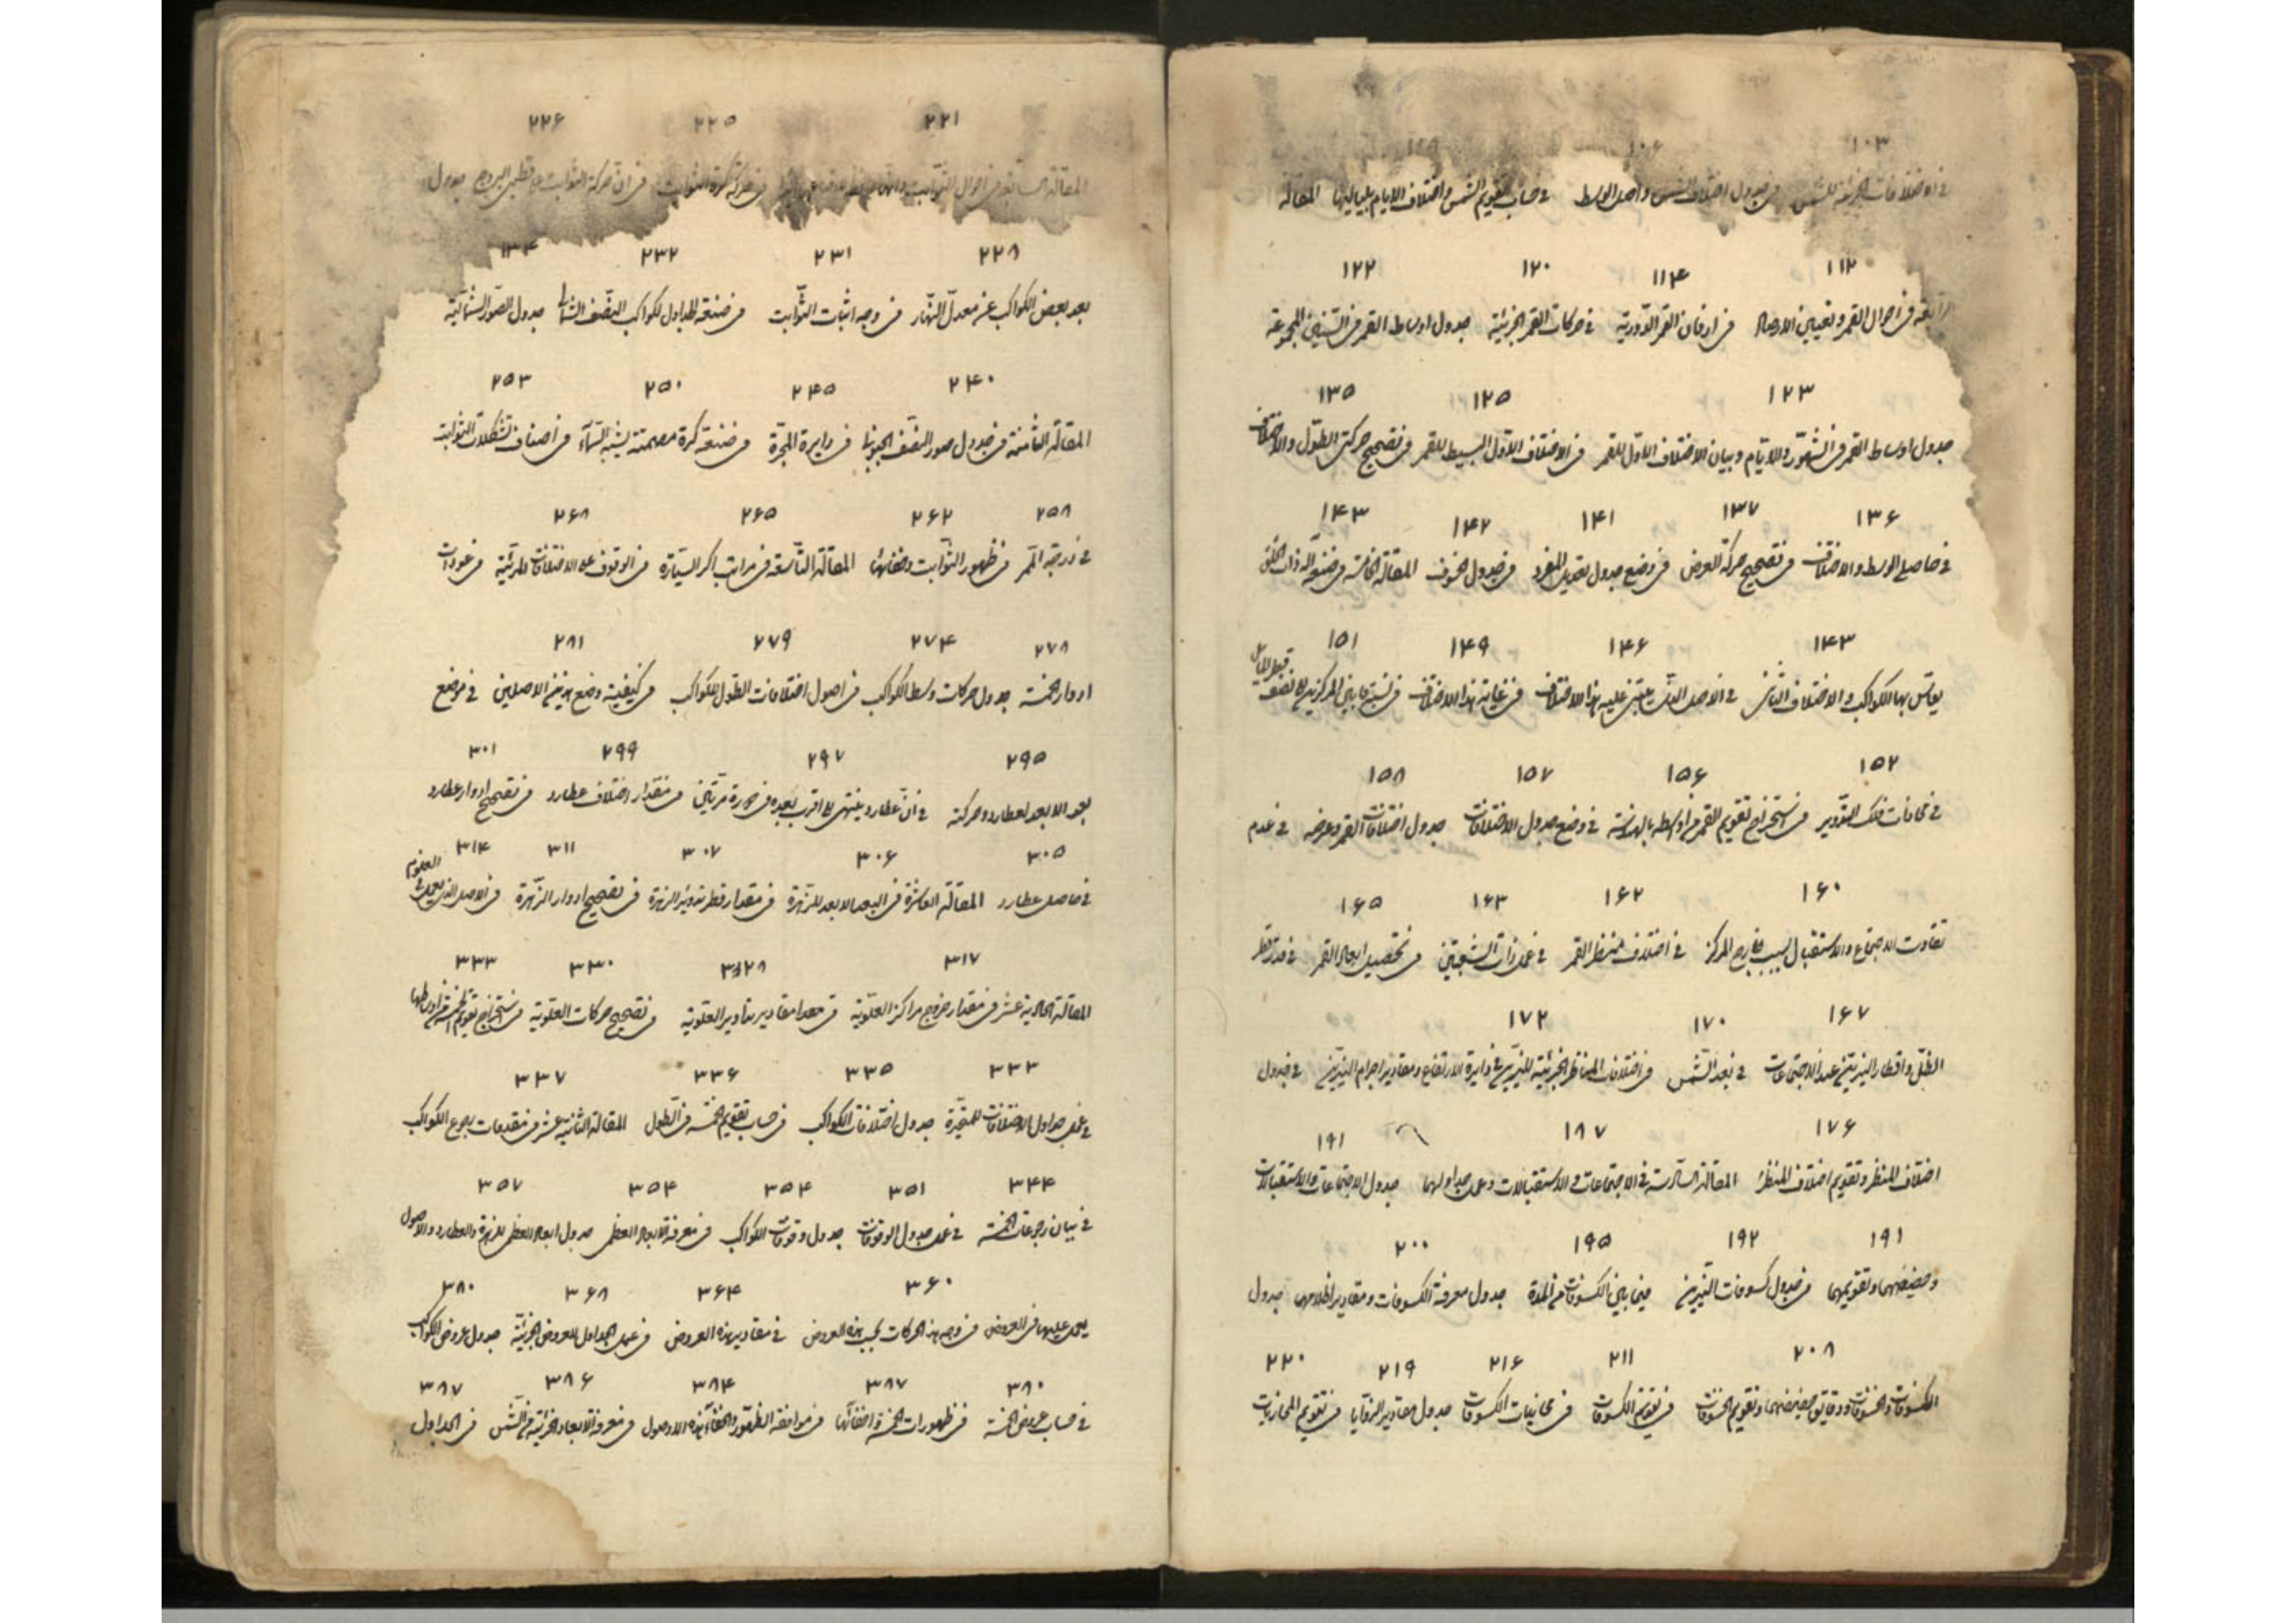 ١٠٣ ١٠٦
في الاختلافات الجزئية للشمس في جدول اختلاف الشمس واصل الوسط في حساب تقويم الشمس واختلاف الايام بلياليها المقالة
١١٢ ١١٤ ١٢٠ ١٢٢
الرابعة في احوال القمر وتعيين الارصاد في ازمان القمر الدورية في حركات القمر الجزئية جدول اوساط القمر في السنين المجموعة
١٢٣ ١٢٥ ١٣٥
جدول اوساط القمر في الشهور والايام وبيان الاختلاف الاول للقمر في الاختلاف الاول البسيط للقمر في تصحيح حركتي الطول والاختلاف
١٣۶ ١٣٧ ١۴١ ١۴٢ ١۴٣
في حاصلي الوسط والاختلاف في تصحيح حركة العرض في وضع جدول تعديل المفرد في جدول الخسوف المقالة الخامسة في صنعة آلة ذات الحلق
١۴٣ ١۴۶ ١۴٩ ١٥١
يقاس بها الكواكب والاختلاف الثاني في الاصل الذي يبتني عليه هذا الاختلاف في غاية هذا الاختلاف في نسبة ما بين المركزين الى نصف قطر المايل
١٥٢ ١٥۶ ١٥٧ ١٥٨
في محاذات فلك التدوير في استخراج تقويم القمر من اوسطه بالهندسة في وضع جدول الاختلافات جدول اختلافات القمر وعرضه في عدم
١۶٠ ١۶٢ ١۶٣ ١۶٥
تفاوت الاجتماع والاستقبال بسبب خارج المركز في اختلاف منظر القمر في عمل ذات الشعبتين في تحصيل ابعاد القمر في قدر قطر
١۶٧ ١٧٠ ١٧٢
الظل واقطار النيرين عند الاجتماعات في بعد الشمس في اختلافات المناظر الجزئية للنيرين في دايرة الارتفاع ومقادير اجرام النيرين في جدول
١٧۶ ١٨٧ ١٩١
اختلاف المنظر وتقويم اختلاف المنظر المقالة السادسة في الاجتماعات والاستقبالات وعمل جداولهما جدول الاجتماعات والاستقبالات
١٩١ ١٩٢ ١٩٥ ٢٠٠
وحضيضهما وتقويمهما في جدول كسوفات النيرين فيما بين الكسوفات من المدة جدول معرفة الكسوفات ومقادير اظلامهما جدول
٢٠٨ ٢١١ ٢١۶ ٢١٩ ٢٢٠
الكسوفات والخسوفات ودقايق حضيضهما وتقويم الخسوفات في تقويم الكسوفات في محاذيات الكسوفات جدول مقادير الزوايا في تقويم المحاذيات
٢٢١ ٢٢٥ ٢٢۶
المقالة السابعة في احوال الثوابت في حركة كرة الثوابت في ان حركة الثوابت على قطبي البروج جدول
٢٢٨ ٢٣١ ٢٣٢
بعد بعض الكواكب عن معدل النهار في وجه اثبات الثوابت في صنعة الجداول لكواكب النصف الشمالي جدول الصور الشمالية
٢۴٠ ٢۴٥ ٢٥٠ ٢٥٣
المقالة الثامنة في جدول صور النصف الجنوبي في دايرة المجرة في صنعة كرة مصمتة يشبه السماء في اصناف تشكلات الثوابت
٢٥٨ ٢۶٢ ٢۶٥ ٢۶٨
في درجة الممر في ظهور الثوابت وخفائها المقالة التاسعة في مراتب اكر السيارة في الوقوف على الاختلافات المرئية في عودات
٢٧٨ ٢٧۴ ٢٧٩ ٢٨١
ادوار الخمسة جدول حركات وسط الكواكب في اصول اختلافات الطول للكواكب في كيفية وضع هذين الاصلين في موضع
٢٩٥ ٢٩٧ ٢٩٩ ٣٠١
بعد الابعد لعطارد وحركته في ان عطارد ينتهي الى اقرب بعده في دورة مرتين في مقدار اختلاف عطارد في تصحيح ادوار عطارد
٣٠٥ ٣٠۶ ٣٠٧ ٣١١ ٣١۴
في حاصل عطارد المقالة العاشرة في البعد الابعد للزهرة في مقدار قطر تدوير الزهرة في تصحيح ادوار الزهرة في الاصل الذي يعمل في العلوية
٣١٧ ٣٢٨ ٣٣٠ ٣٣٣
المقالة الحادية عشر في مقدار خروج مراكز العلوية في معرفة مقادير تداوير العلوية في تصحيح حركات العلوية في استخراج تقويم الخمسة من اوساطها
٣٣٣ ٣٣٥ ٣٣۶ ٣٣٧
في عمل جداول الاختلافات المتحيرة جدول اختلافات الكواكب في حساب تقويم الخمسة في الطول المقالة الثانية عشر في مقدمات رجوع الكواكب
٣۴۴ ٣٥١ ٣٥۴ ٣٥۴ ٣٥٧
في بيان رجوعات الخمسة في عمل جدول الوقوفات جدول وقوفات الكواكب في معرفة الابعاد العظمى جدول ابعاد العظمى للزهرة والعطارد والاصول
٣۶٠ ٣۶۴ ٣۶٨ ٣٨٠
يعمل عليها في العروض في وجه هذه الحركات بحسب هذه العروض في مقادير هذه العروض في عمل الجداول للعروض الجزئية جدول عروض الكواكب
٣٨٠ ٣٨٧ ٣٨۴ ٣٨۶ ٣٨٧
في حساب عروض الخمسة في ظهورات الخمسة واختفائها في موافقة الظهور والخفاء لهذه الاصول في معرفة الابعاد الجزئية من الشمس في الجداول